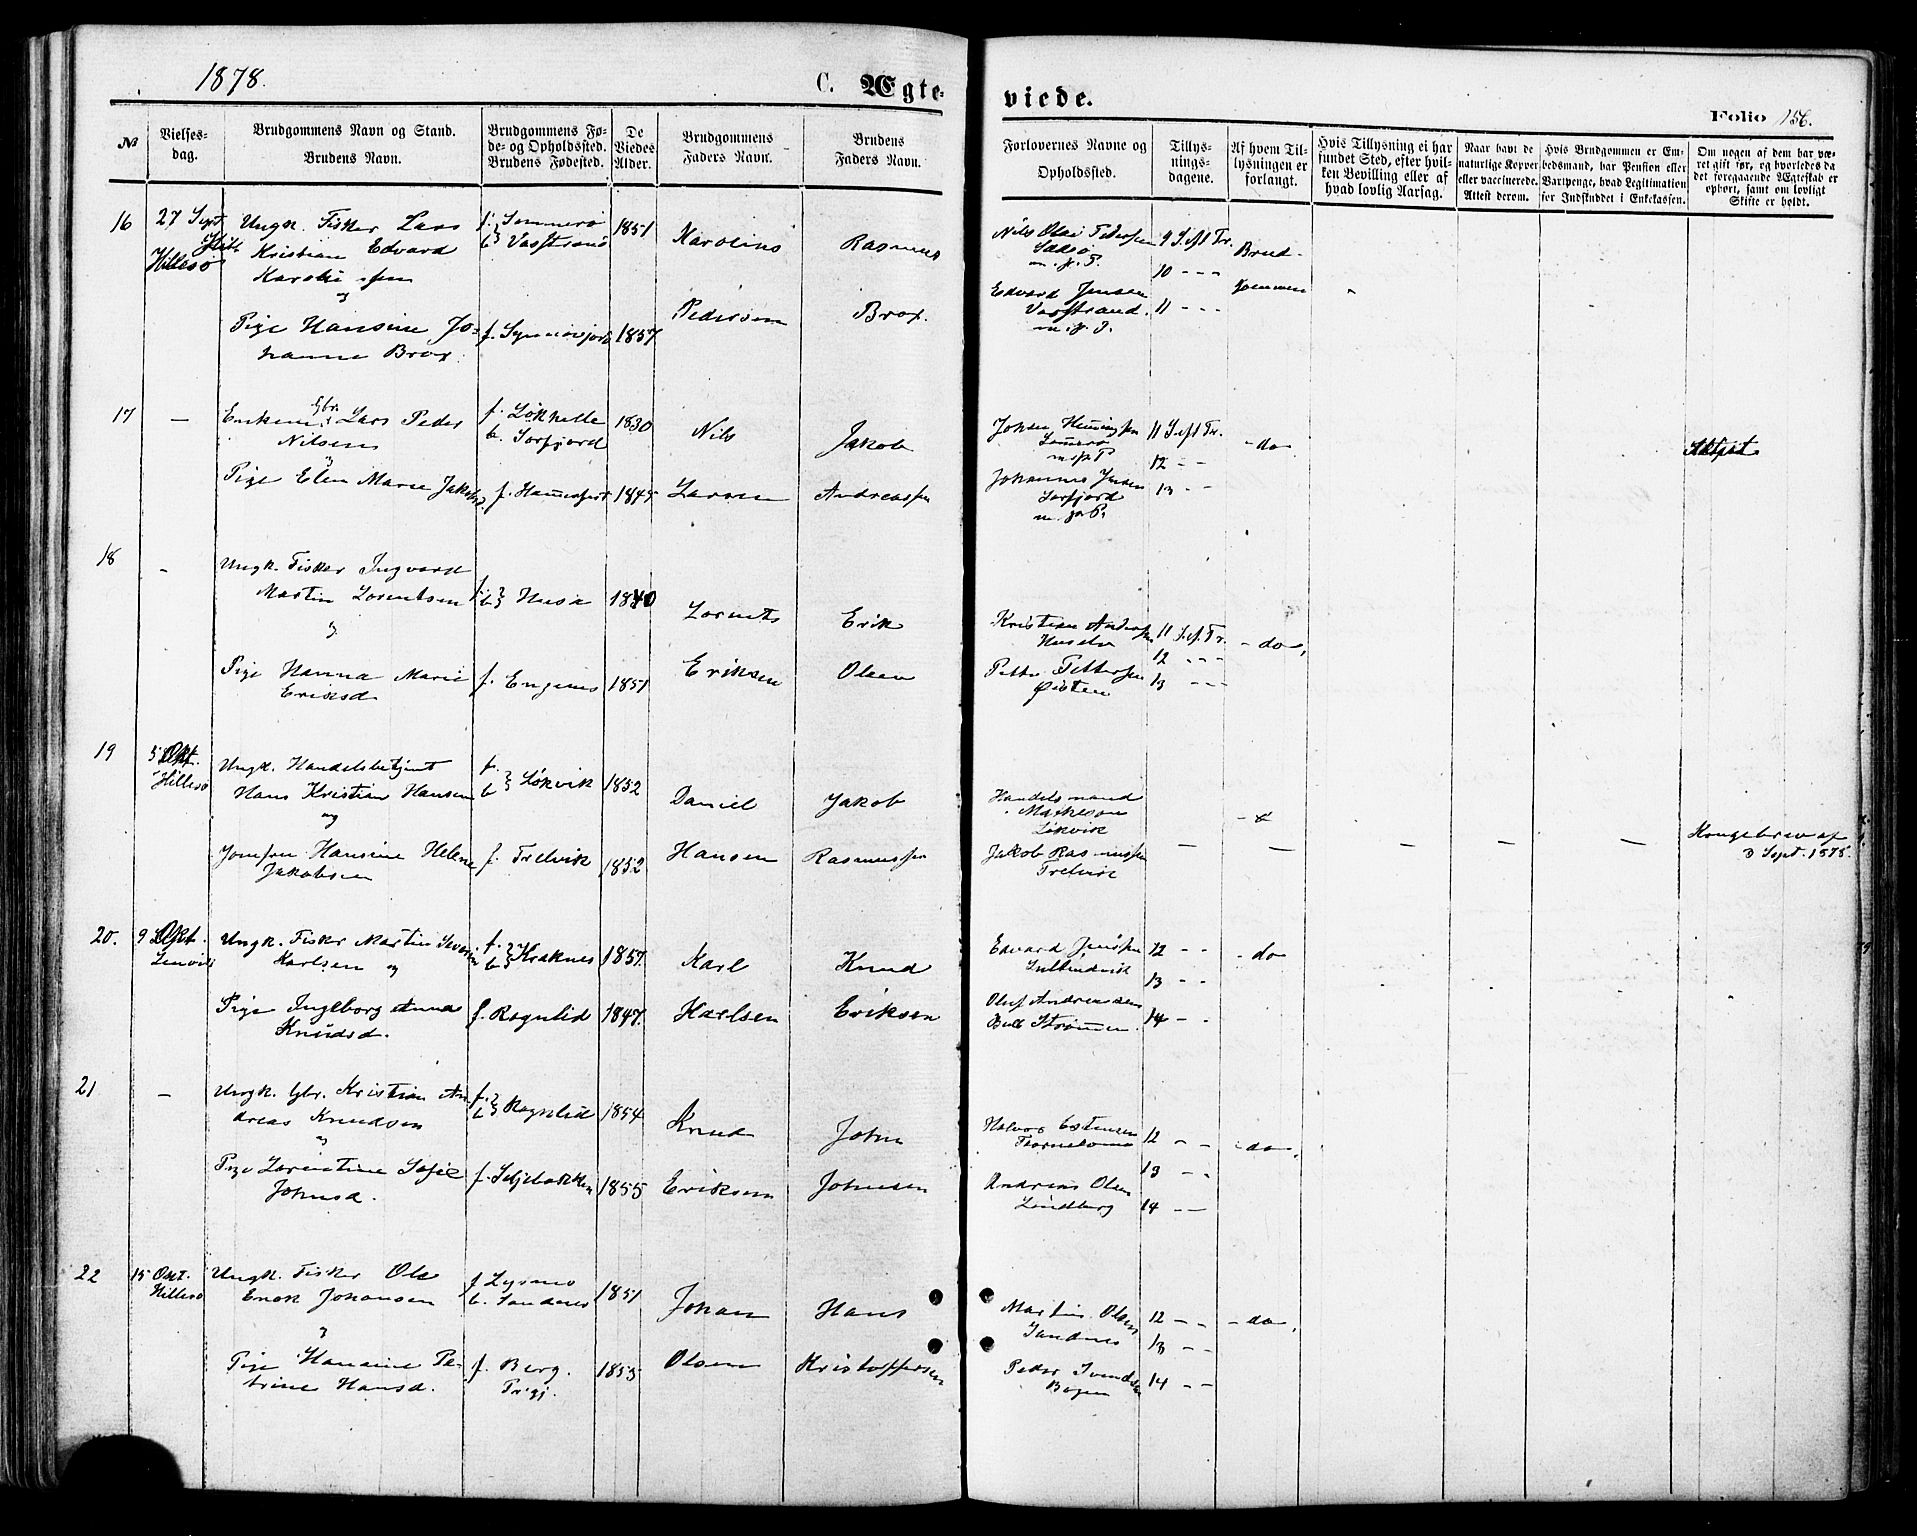 1878.
C. Ægte-
viede.
Folio 156.
№
Vielses-
dag.
Brudgommens Navn og Stand.
Brudens Navn.
Brudgommens Fø-
de- og Opholdssted.
Brudens Fødested.
De
Viedes
Alder.
Brudgommens
Faders Navn.
Brudens
Faders Navn.
Forlovernes Navne og
Opholdssted.
Tillys-
nings-
dagene.
Af hvem Til-
lysningen er
forlangt.
Hvis Tillysning ei har
fundet Sted, efter hvil-
ken Bevilling eller af
hvad lovlig Aarsag.
Naar havt de
naturlige Kopper
eller vaccinerede.
Attest derom.
Hvis Brudgommen er Em-
bedsmand, har Pension eller
Vartpenge, hvad Legitimation
for Indskuddet i Enkekassen.
Om nogen af dem har væ-
ret gift før, og hvorledes da
det foregaaende Ægteskab er
ophørt, samt om lovligt
Skifte er holdt.
16
27 Sept
Hillesø
Ungk. Fisker Lars
Kristian Edvard
og
Pige Hansine Jo-
hanne Brox.
f. Sommerø
b. Vasstrand
1851
f.
1857
Karolius
Pedersen
Rasmus
Brox.
Nils Olai Pedersen
Edvard Jensen
Vasstrand.
9 Sept Tr.
10 - - -
11 - - -
Brud-
gommen
17
—
Enkem. Gbr. Lars Peder
Nilsen
Pige Elen Marie
f.
b. Sørfjord
1830
f. Hammerfest
1845
Nils
Larsen
Jakob
Andreassen
Johannes Jensen
Sørfjord
11 Sept Tr.
12 - -
13 - -
- do
18
-
Ungk. Fisker Ingvard
Martin Lorentsen
Pige Hanna Marie
Eriksd
f.
b. Husø
1840
f. Engenes
1851
Lornts
Eriksen
Erik
Olsen
Kristian
Petter Pettersen
11 Sept Tr.
12 - - -
13 - - -
- do,
19
5 Okt.
Hillesø
Ungk. Handelsbetjent
Hans Kristian Hansen
og
Jomfru Hansine Helene
Jakobsen
f.
b. Løkvik
1852
f. Trelvik
1852
Daniel
Hansen
Jakob
Rasmussen
Handelsmand
Løkvik
Jakob Rasmussen
Trelvik
Kongebrev af
3 Sept. 1878.
20.
9 Okt.
Lenvik
Ungk. Fisker Martin
Karlsen og
Pige Ingeborg Anna
Knudsd.
f.
b. Kraknes
1857.
f. Rognlid
1847.
Karl
Karlsen
Knud
Eriksen
Edvard Jensen
Oluf Andreassen
12 - -
13 - -
14 - -
- do
21
—
Ungk. Gbr. Kristian An-
dreas Knudsen
Pige Lorentine Sofie
Johnsd.
f.
b. Rognlid
1854
f. Seljebakken
1855
Knud
Eriksen
John
Johnsen
Andreas Olsen
Lindberg
12 - -
13 - -
14 - -
- do,
22
15 Okt.
Hillesø
Ungk. Fisker Ole
Enok Johansen
Pige Hansine Pe-
trine Hansd.
f. Lysnes
b. Sandnes
1851
f. Berg.
1855
Johan
Olsen
Hans
Kristoffersen
Martin Olsen
Sandnes
Peder Svendsen
Bogen
12 - -
13 - -
14 - -
- do,